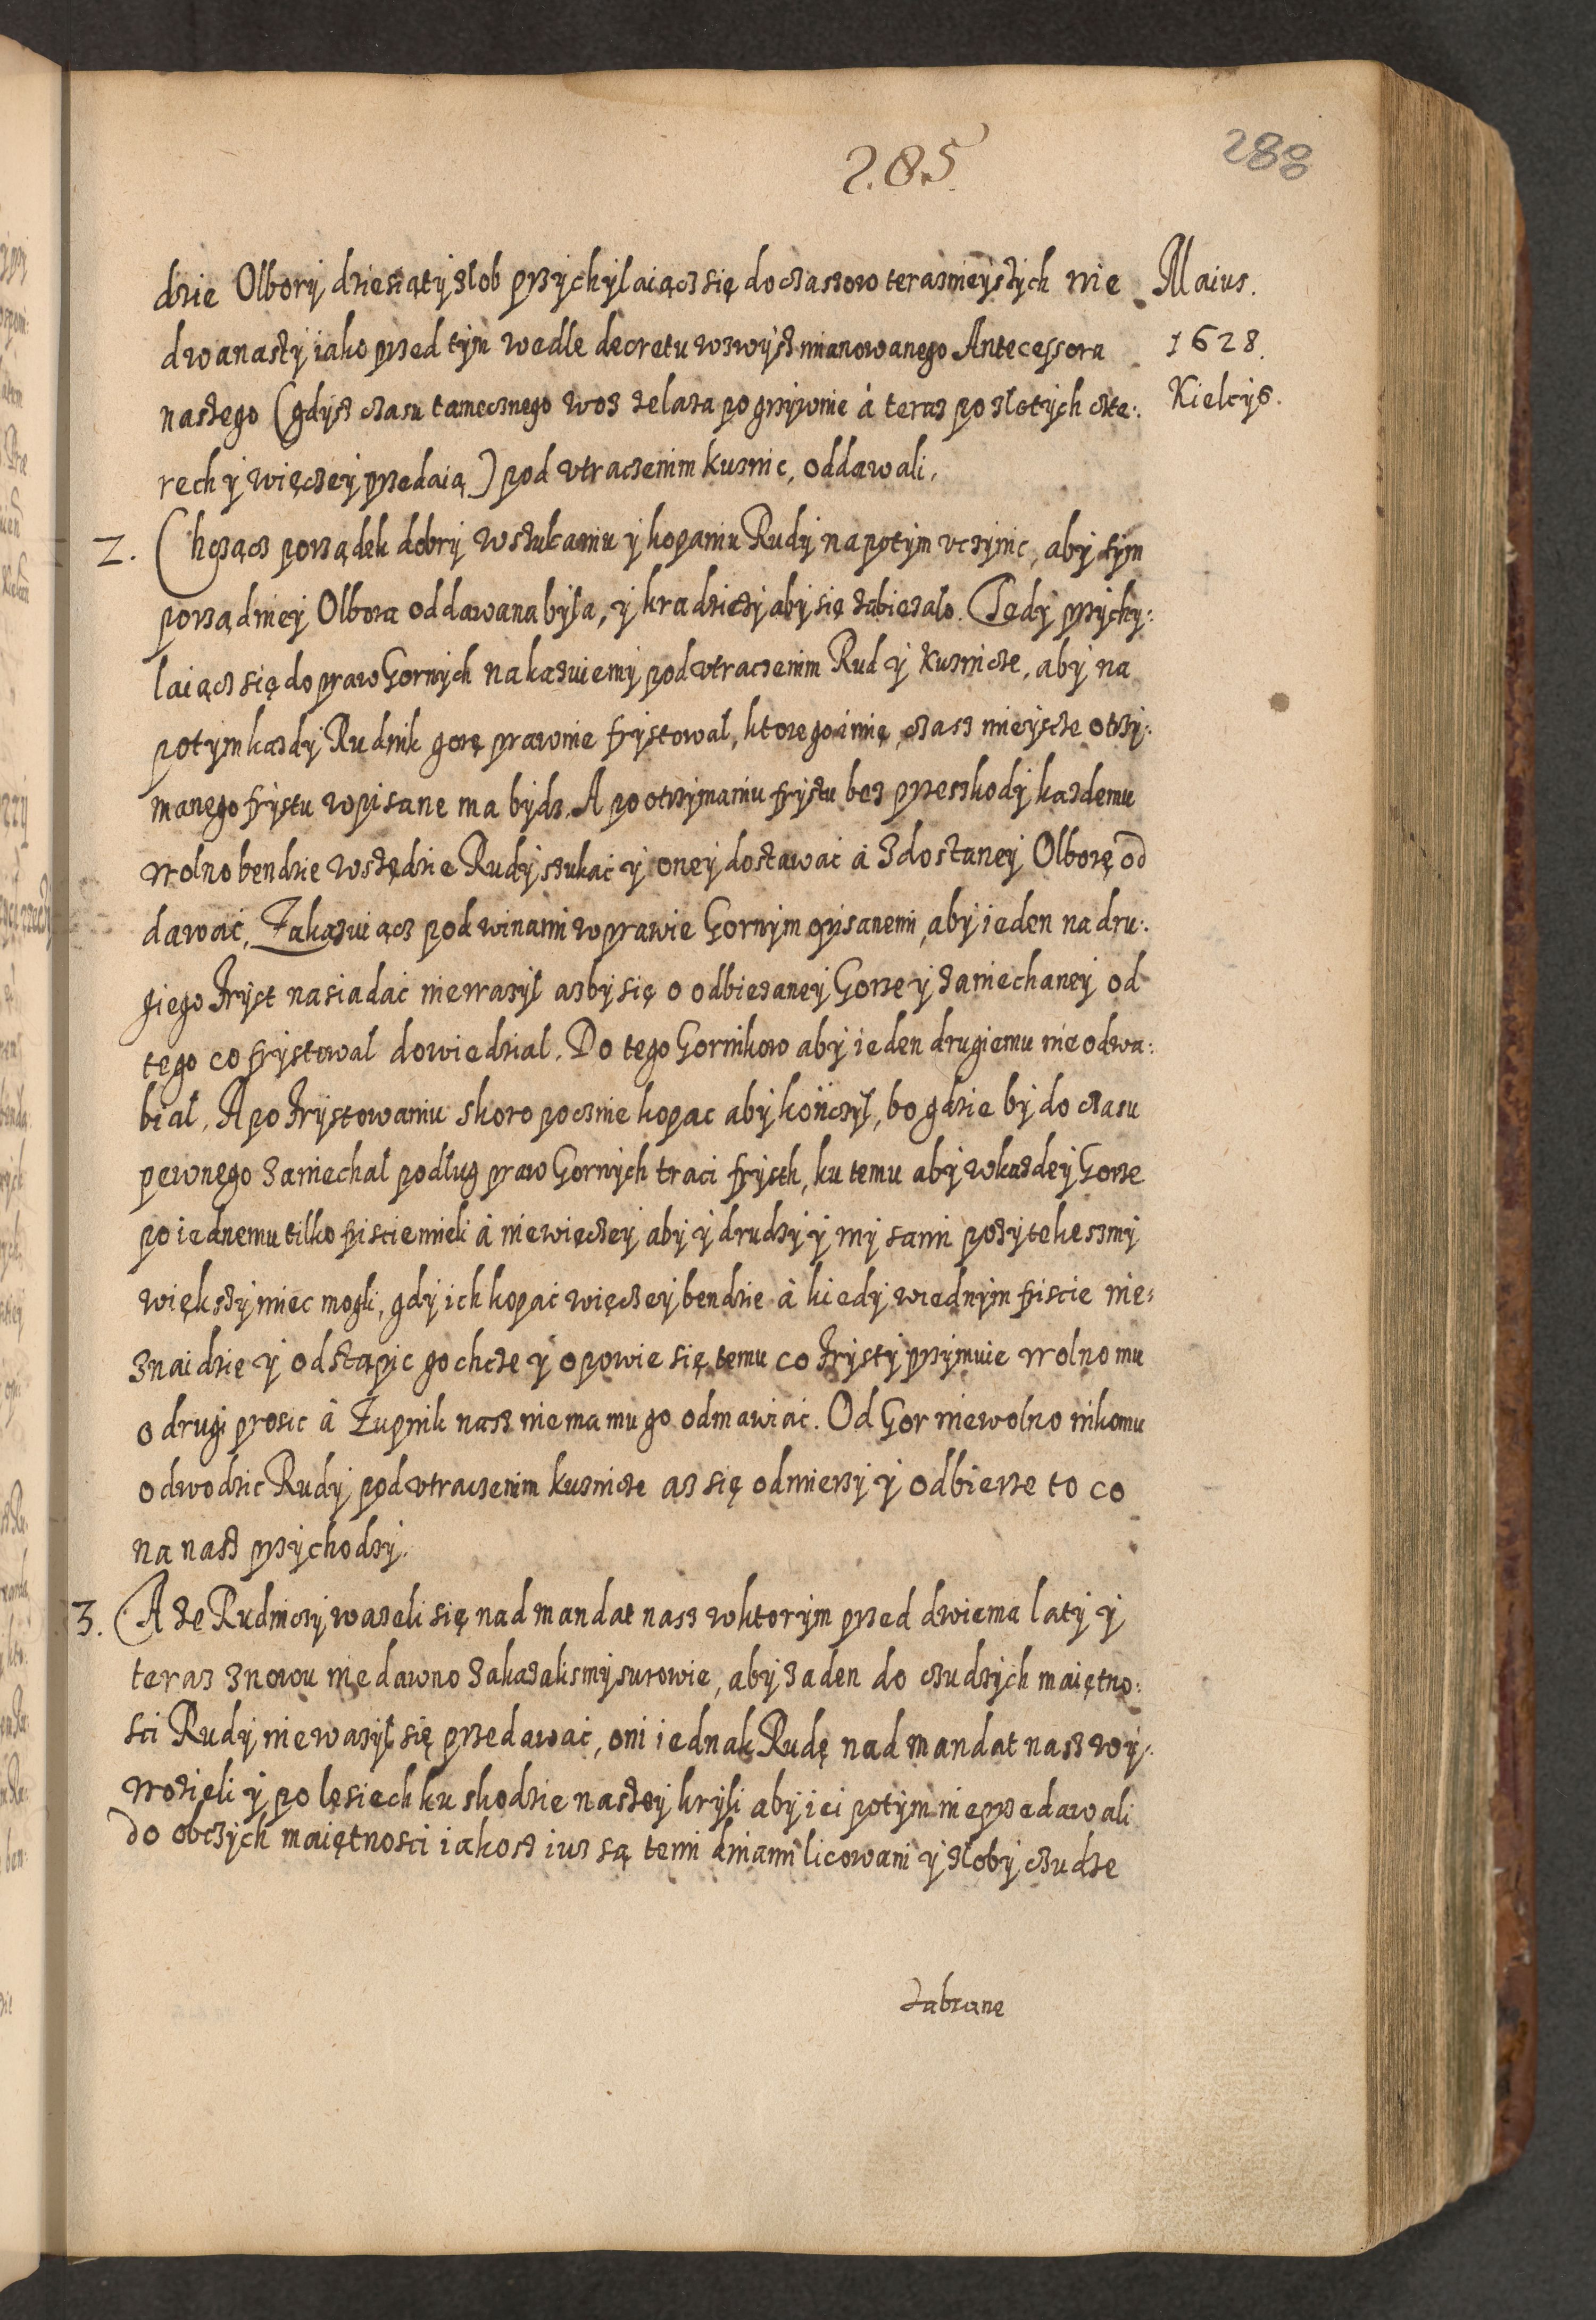 285
288
dzie Olbory dziesiąty żlob przychylaiącz się do czassow teraznieyszych nie
Maius.
dwanasty iako przed tym wedle decretu wzwysz mianowanego Antecessora
1628.
naszego (gdysz czasu tamecznego woz zelaza po grzywnie á teraz po zlotych czte:
Kielcys.
rech y więczey przedaią) pod vtraczenim kuznic, oddawali.
2. Chcącz porządek dobry w szukaniu y kopaniu Rudy napotym vczynic, aby tym
porządniey Olbora oddawana była, y kradzieży aby się zabiezalo. Tedy przychy:
laiącz się do praw Gornych nakazuiemy pod vtraczenim Rud y kuznicze, aby na
potym kazdy Rudnik gorę prawnie frystowal, ktorego imię, czass mieyscze otrzy:
manego frystu wpisane ma bydz. A po otrzymaniu frystu bez przeszkody kazdemu
wolno bendzie wszędzie Rudy szukać y oney dostawać á z dostaney Olborę od
dawać, Zakazuiącz pod winami w prawie Gornym opisanemi, aby ieden na dru:
giego fryst nasiadać nie wazyl azby się o odbiezaney Gorze y zaniechaney od
tego co frystowal dowiedzial. Do tego Gornikow aby ieden drugiemu nie odwa:
bial. A po frystowaniu skoro pocznie kopac aby kończyl, bo gdzie by do czasu
pewnego zaniechal podlug praw Gornych traci frysth, ku temu aby w kazdey Gorze
po iednemu tilko friscie mieli á nie więczey aby y drudzy y my sami pożytek eszmy
większy miec mogli, gdy ich kopać więczey bendzie á kiedy w iednym friscie nie:
znaidzie y odstąpic go chcze y opowie się temu co frysty przymuie wolno mu
o drugi prosic á Zupnik nasz nie ma mu go odmawiać. Od Gor nie wolno nikomu
odwodzic Rudy pod vtraczenim kuznicze az się odmierzy y odbierze to co
na nasz przychodzy.
3. A że Rudniczy wazeli się nad mandat nasz w ktorym przed dwiema laty y
teraz znowu niedawno zakazalismy surowie, aby zaden do czudzych maiętno:
sci Rudy nie wazyl się przedawać, oni iednak Rudę nad mandat nasz wy:
wozieli y po lesiech ku skodzie naszey kryli aby iei potym nie przedawali
do obczych maiętnosci iakosz iuz są temi dniami licowani y żloby czudze
zabrane